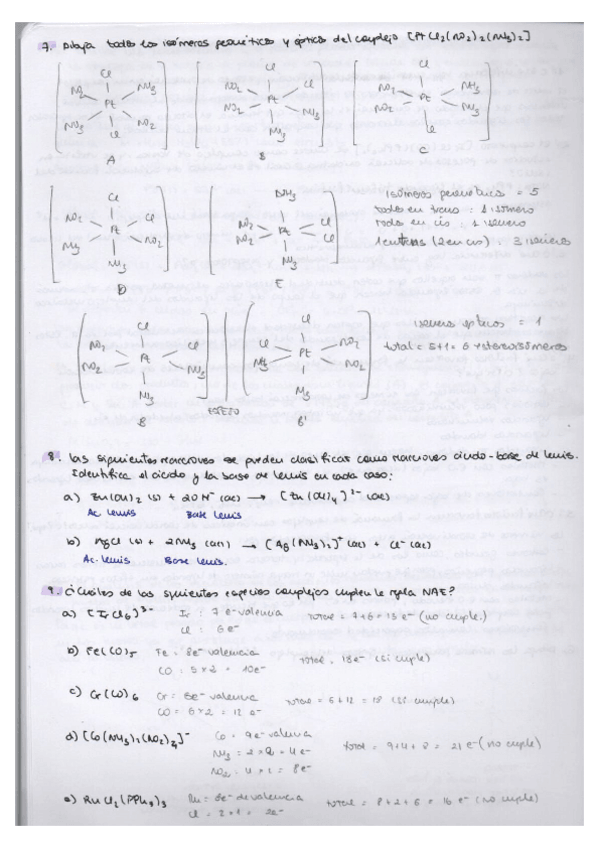 7. Dibuja todos los isómeros geométricos y ópticos del complejo [Pt Cl2(NO2)2(NH3)2]
Cl Cl Cl
NO2 NH3 NO2 Cl NO2 NH3
Pt Pt Pt
NH3 NO2 NO2 NH3 NO2 NH3
Cl NH3 Cl
A B C
Cl NH3
NO2 Cl NO2 Cl
Pt Pt
NH3 NO2 NO2 Cl
NH3 NH3
D E
isómeros geométricos = 5
todos en trans : 1 isómero
todos en cis : 1 isómero
1 en trans (2 en cis) : 3 isómeros
Cl Cl
NO2 Cl Cl NO2
Pt Pt
NO2 NH3 NH3 NO2
NH3 NH3
B ESPEJO B'
isómeros ópticos = 1
total = 5+1 = 6 estereoisómeros
8. Las siguientes reacciones se pueden clasificar como reacciones ácido-base de Lewis.
Identifica el ácido y la base de Lewis en cada caso:
a) Zn(OH)2 (s) + 2OH- (ac) → [Zn(OH)4]2- (ac)
Ac. Lewis Base Lewis
b) AgCl (s) + 2NH3 (ac) → [Ag(NH3)2]+ (ac) + Cl- (ac)
Ac. Lewis Base Lewis.
9. ¿Cuáles de las siguientes especies complejas cumplen la regla NAE?
a) [IrCl6]3- Ir : 7 e- valencia total = 7+6 = 13 e- (no cumple.)
Cl : 6e-
b) Fe(CO)5 Fe = 8e- valencia total = 18e- (si cumple)
CO : 5x2 = 10e-
c) Cr(CO)6 Cr = 6e- valencia total = 6+12 = 18 (si cumple)
CO = 6x2 = 12 e-
d) [Co(NH3)2(NO2)4]- Co = 9e- valencia total = 9+4+8 = 21 e- (no cumple)
NH3 = 2x2 = 4e-
NO2 = 4x2 = 8e-
e) RuCl2(PPh3)3 Ru = 8e- de valencia total = 8+2+6 = 16 e- (no cumple)
Cl = 2x1 = 2e-